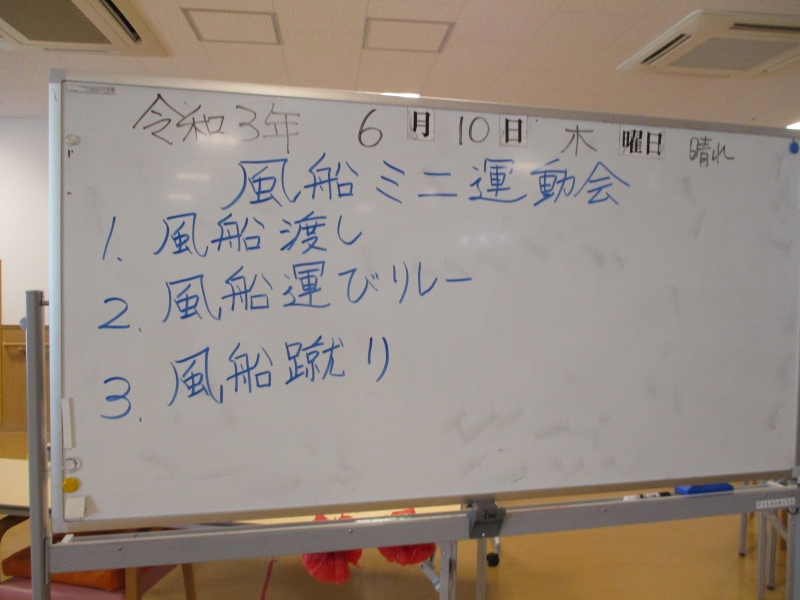 令和3年 6月10日 木曜日 晴れ
風船ミニ運動会
1. 風船渡し
2. 風船運びリレー
3. 風船蹴り